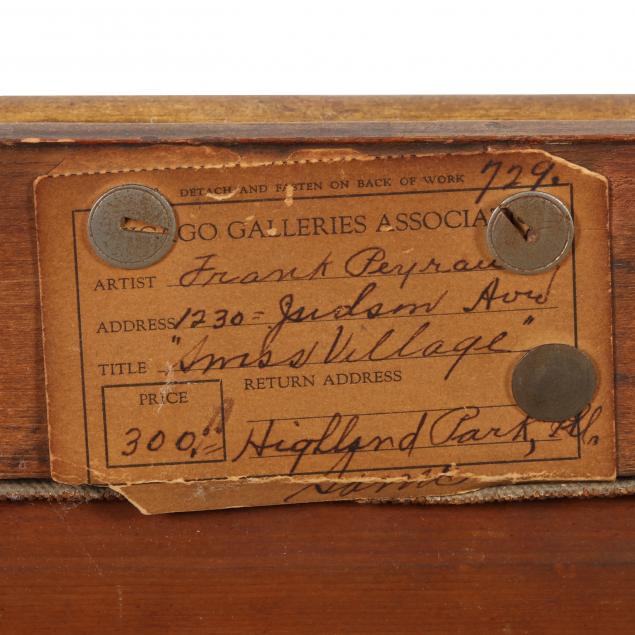 DETACH AND FASTEN ON BACK OF WORK 729.
GO GALLERIES ASSOCIA
ARTIST Frank Peyrau
ADDRESS 1230 = Judson Ave
TITLE "Swiss Village"
RETURN ADDRESS
PRICE
300.00 Highland Park, Ill.
Same